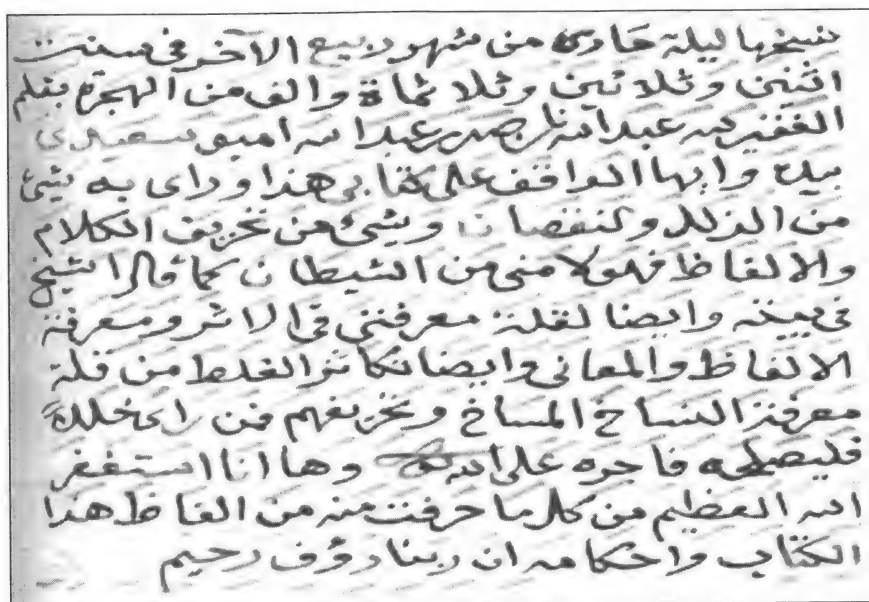 نسخها ليلة حادى من شهر ربيع الآخر فى سنت
اثنين وثلاثين وثلاثماة والف من الهجرة بقلم
الفقير لله عبد الله بن صدر عبد الله
بيده وايها الواقف على كتابى هذا وراى به شئ
من الزلل ولنقصان وشئ من تحريف الكلام
والالفاظ فهولا منى من الشيطان كما قال الشيخ
فى وايضا لقلة معرفتى فى الاثر ومعرفة
الالفاظ والمعانى وايضا تكاثر الغلط من قلة
معرفة النساخ المساخ وتحريفهم فمن راى خللاً
فليصلحه فاجره على الله وها انا استغفر
الله العظيم من كل ما حرفت منه من الفاظ هذا
الكتاب واحكامه ان ربنا رؤف رحيم